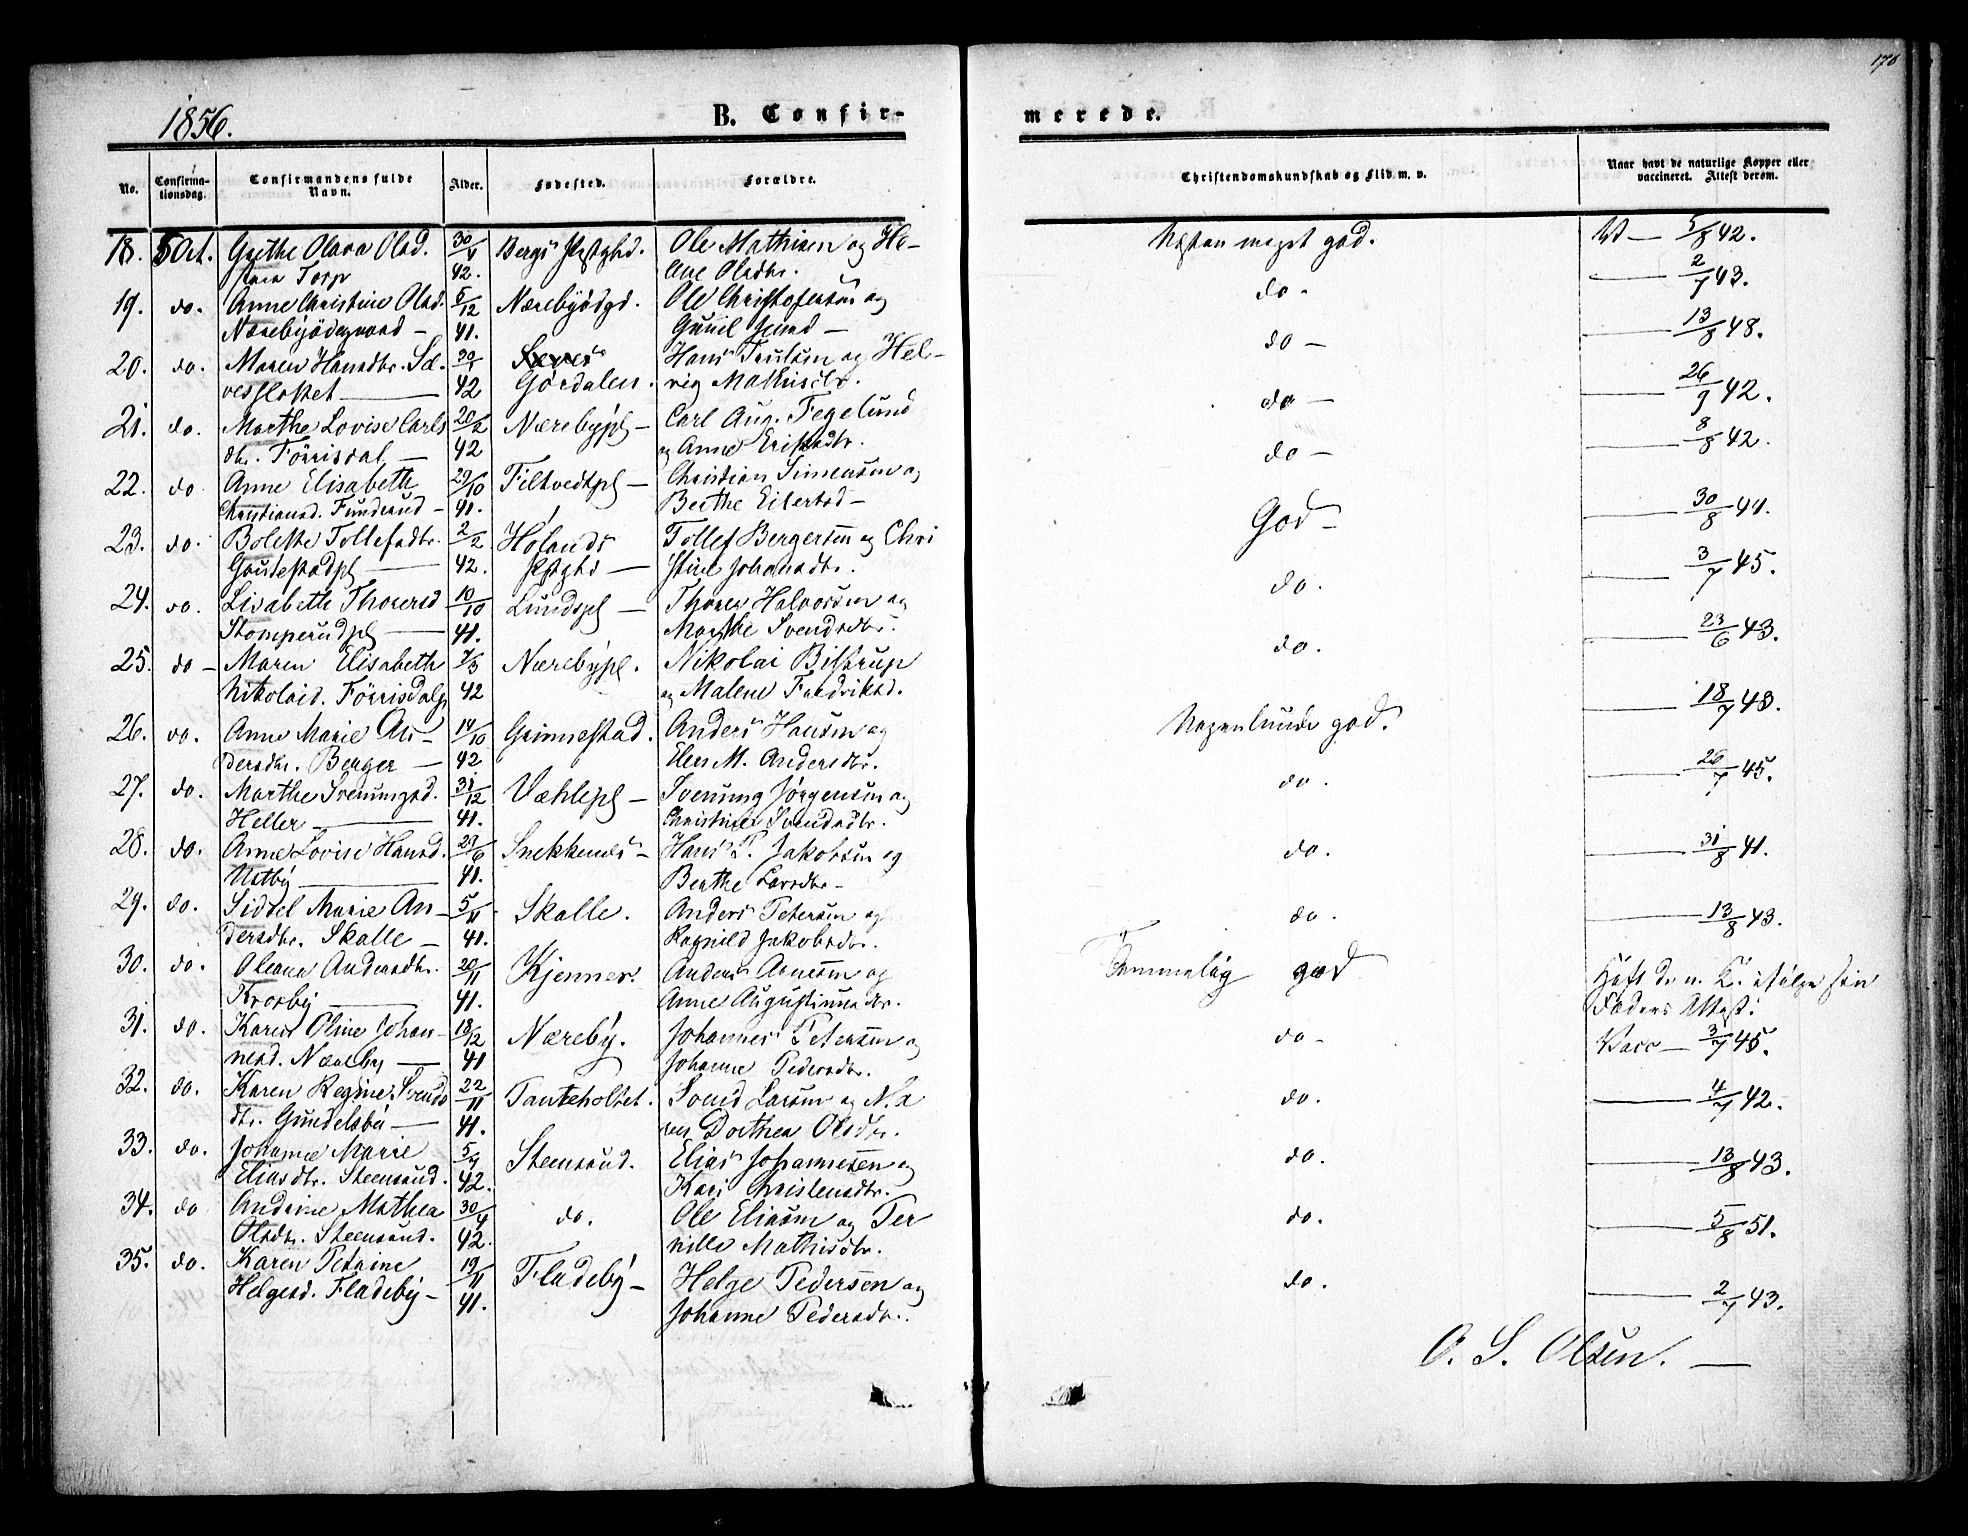 170
1856.
B. Confirmerede.
No. Confirmationsdag. Confirmandens fulde Navn. Alder. Fødested. Forældre. Christendomskundskab og Flid m. v. Naar havt de naturlige Kopper eller vaccineret. Attest derom.
18. 5 Oct. Grethe Olava Olsd. 30/4 Bergs Præstgjld. Ole Mathisen og He- Næsten meget god. 5/8 42.
Torp 42. Olsdtr.
19. do. Anne Christine Olsd. 5/12 Nærebyødgd. Ole Christofersen og do. 2/7 43.
Nærebyødegaard — 41. Gunil
20. do. Maren Hansdtr. Sæ- 30/1 Gördalen. Hans Trulsen og Hel- do — 13/8 48.
vesslottet — 42 vig Mathisdtr.
21. do. Marthe Lovise Carls 20/2 Nærebypl — Carl Aug. Fegelund do — 26/9 42.
dtr. Förrisdal — 42 og Anne Eriksdtr.
22. do Anne Elisabeth 29/10 Filtvedtpl — Christian Simensen og do — 8/8 42.
Christiansd. Funderud — 41. Berthe Eilertsd —
23. do. Bolette Tollefsdtr. 2/2 Hölands Tollef Bergersen og Chri God — 30/8 41.
Goutestadpl — 42. Præstgjld — stine Johansdtr.
24. do. Lisabeth Thorersd 10/10 Lundspl — Thorer Halvorsen og do. 3/7 45.
Stomperudpl — 41. Marthe Svendsdtr.
25. do — Maren Elisabeth 7/3 Nærebypl. Nikolai Bistrup do. 23/6 43.
Nikolaid. Förrisdalpl 42 og Malene Fredriksd.
26. do. Anne Marie An- 14/10 Grinnestad. Anders Hansen og Nogenlunde god. 18/7 43.
dersdtr. Berger — 42 Elen M. Andersdtr.
27. do. Marthe Svenungsd. 31/12 Væhlepl — Svenung Jørgensen og do. 26/7 45.
Heller — 41. Christine Svendsdtr.
28. do. Anne Lovise Hansd. 29/6 Snekkenes — Hans P. Jakobsen og do. 31/8 41.
Notby — 41. Berthe Larsdtr —
29. do. Siddel Marie An- 5/11 Skalle. Anders Petersen og do. 13/8 43.
dersdtr. Skalle — 41. Ragnild Jakobsdtr.
30. do. Oleana Andersdtr. 20/11 Kjenner. Anders Arnesen og Temmelig god Haft de n. K. ifølge sin
Krosby — 41. Anne Augustinusdtr. Faders Attest.
31. do. Karen Oline Johan- 18/12 Næreby. Johannes Petersen og do — Vacc — 3/7 45.
nesd. Næreby — 41 Johanne Pedersdtr.
32. do. Karen Regine Svends 22/11 Tanteholtet. Svend Larsen og Ma do. 4/7 42.
dtr. Gundelsby — 41. ren Dorthea Olsdtr.
33. do. Johanne Marie 5/7 Steensrud. Elias Johannesen og do. 13/8 43.
Eliasdtr. Steensrud. 42. Kari Christensdtr.
34. do Andrine Mathea 30/4 do. Ole Eliasen og Per do. 5/8 51.
Olsdtr. Steensrud. 42. nille Mathisdtr.
35. do. Karen Petrine 19/11 Fladeby — Helge Pedersen og do. 2/7 43.
Helgesd. Fladeby — 41. Johanne Pedersdtr.
O. S. Olsen. —